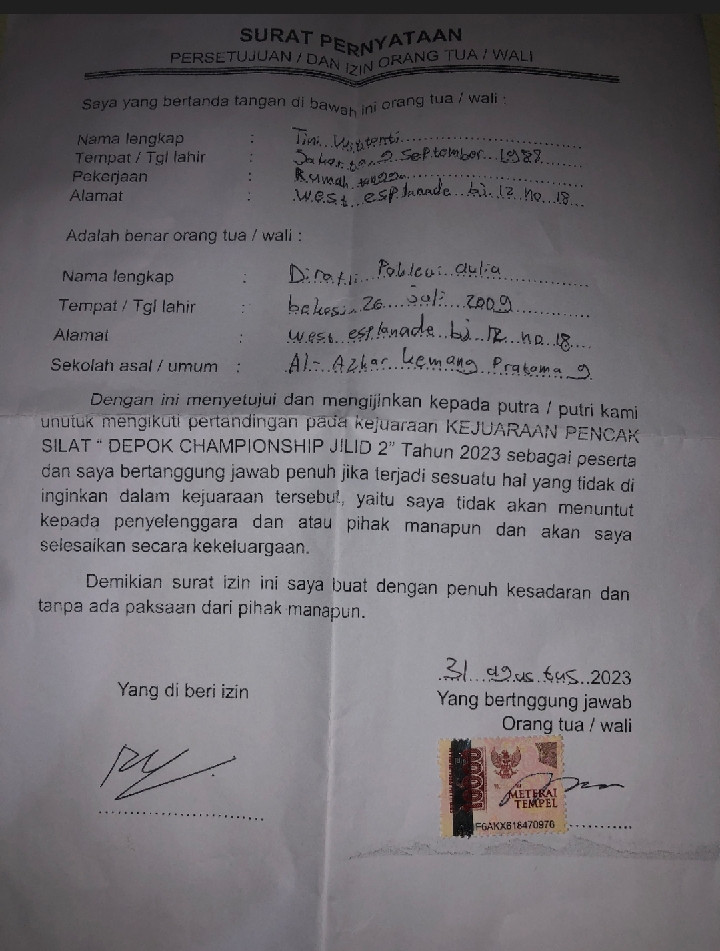 SURAT PERNYATAAN
PERSETUJUAN / DAN IZIN ORANG TUA / WALI
Saya yang bertanda tangan di bawah ini orang tua / wali :
Nama lengkap : Tini
Tempat / Tgl lahir : 2 September 1988
Pekerjaan : Rumah
Alamat : west esplanade bi 12 no 18
Adalah benar orang tua / wali :
Nama lengkap : aulia
Tempat / Tgl lahir : bekasi 26 Juli 2009
Alamat : west esplanade bi 12 no 18
Sekolah asal / umum : Al-Azhar kemang Pratama 9
Dengan ini menyetujui dan mengijinkan kepada putra / putri kami
unutuk mengikuti pertandingan pada kejuaraan KEJUARAAN PENCAK
SILAT “ DEPOK CHAMPIONSHIP JILID 2” Tahun 2023 sebagai peserta
dan saya bertanggung jawab penuh jika terjadi sesuatu hal yang tidak di
inginkan dalam kejuaraan tersebut, yaitu saya tidak akan menuntut
kepada penyelenggara dan atau pihak manapun dan akan saya
selesaikan secara kekeluargaan.
Demikian surat izin ini saya buat dengan penuh kesadaran dan
tanpa ada paksaan dari pihak manapun.
31 agustus 2023
Yang di beri izin
Yang bertnggung jawab
Orang tua / wali
10000
METERAI
TEMPEL
F6AKX618470976